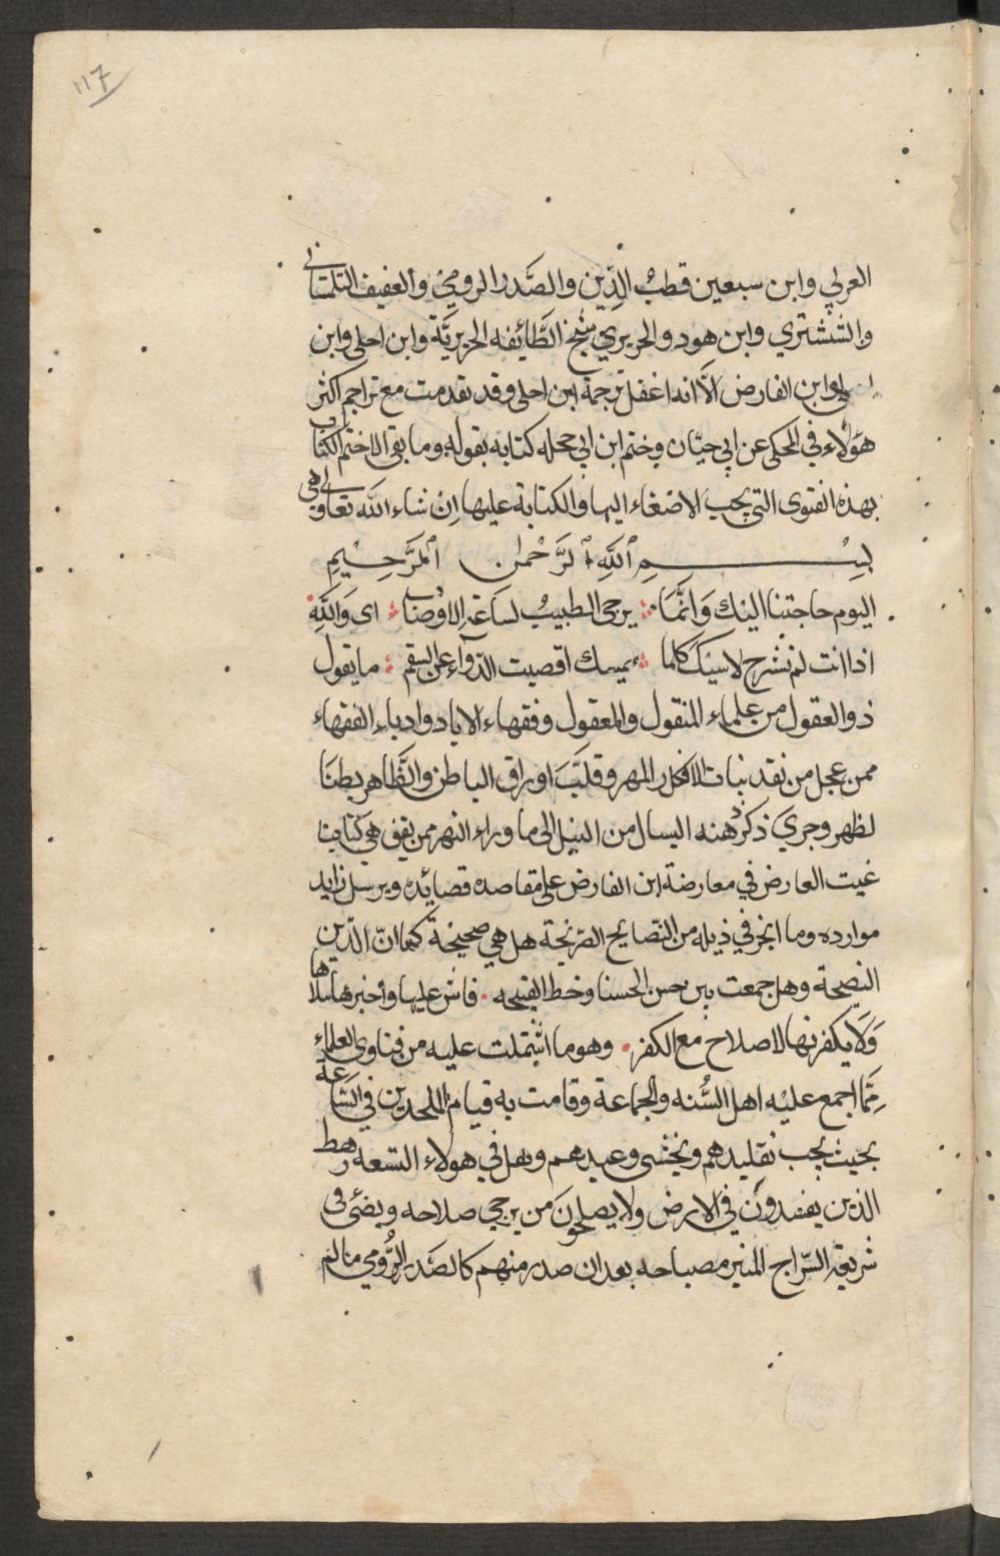 ١١٧
العربي وابن سبعين قطب الدِّين والصَّدر الرومي والعفيف التلمساني
والشُشتري وابن هود والحريري شيخ الطَّائفه الحريريَّة وابن احلى وابن
ابن الفارض الَّا انه اغفل ترجمة ابن احلى وقد تقدمت مع تراجم اكثر
هؤلاء في المحكي عن ابي حيّان وختم ابن ابي حجله كتابه بقوله وما بقي الا ختم الكتاب
بهذه الفتوى التي يجب الاصغاء اليها والكتابة عليها اِن شاء الله تعالى وهي
بِسْمِ ٱللَّهِ ٱلرَّحْمٰنِ ٱلرَّحِيْمِ
اليوم حاجتنا اليك وَانَّمَا يرجى الطبيبُ لساعة الاوصاب اى وَاللَّهِ
اذا انت لم تشرح لاسيك كلما يمسك اقصيت الدّوآء عن السقم ما يقول
ذوو العقول من علماء المنقول والمعقول وفقهاء الاباد وادباء الفقهاء
ممن عجل من نقد نبات الافكار المهر وقلَّبَ اوراق الباطن والظَّاهر بطنًا
لظهر وجرى ذكرُ هذه السال من النيل الى ما وراء النهر ممن يقف هي كتابنا
غيث العارض في معارضة ابن الفارض على مقاصده قصائده ويرسل زايد
موارده وما انجر في ذيله من النّصايح الصّريحة هل هي صحيحة كما انّ الدّين
النصيحة وهل جمعت بين حسن الحسنا وخط القبيحه فاش عليها واخبرها بلاها
وَلَا يكفر بها لاصلاح مع الكفر وهو ما اشْتملت عليه من فتاوى العلماء
مِمَّا اجمع عليْه اهل السُّنه والجماعة وقامت به قيام الملحدين في السَّاعة
بحيث يجب تقليدهم ويخشى وعيدهم وهل في هولاء التسعة رهط
الذين يفسدونَ في الارض ولا يصلحونَ من يرجى صلاحه ويضئ في
شريعة السّراج المنير مصباحه بعد ان صدر منهم كالصَدر الرُّومي ما لم